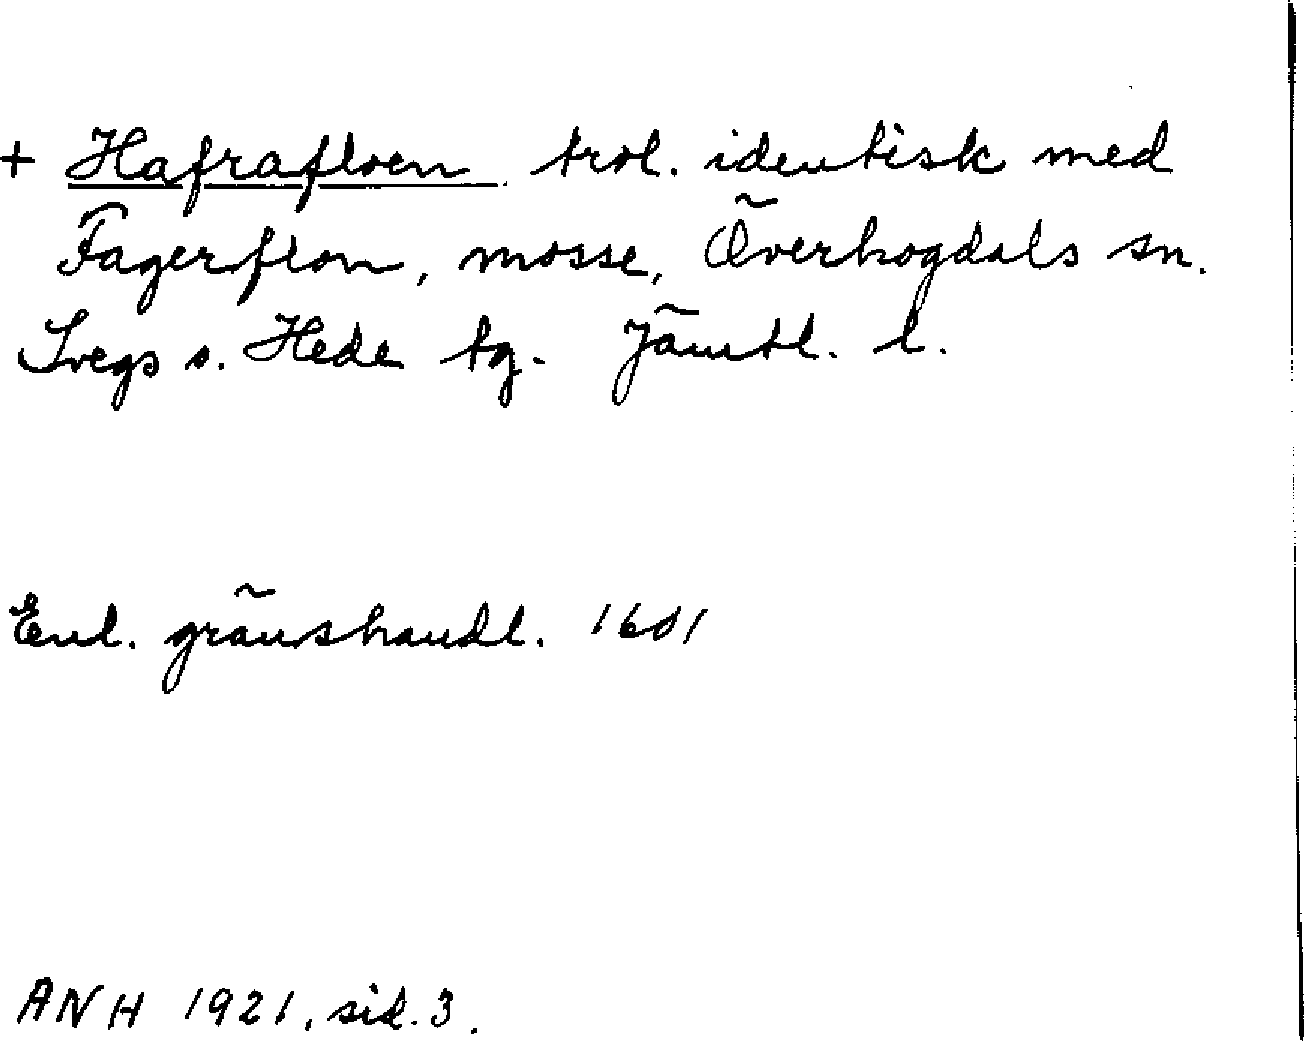 + Hafrafloen trol. identisk med
Fagerflon, mosse, Överhogdals sn.
Svegs o. Hede tg. Jämtl. l.
Enl. gränshandl. 1601
ANH 1921, sid. 3.